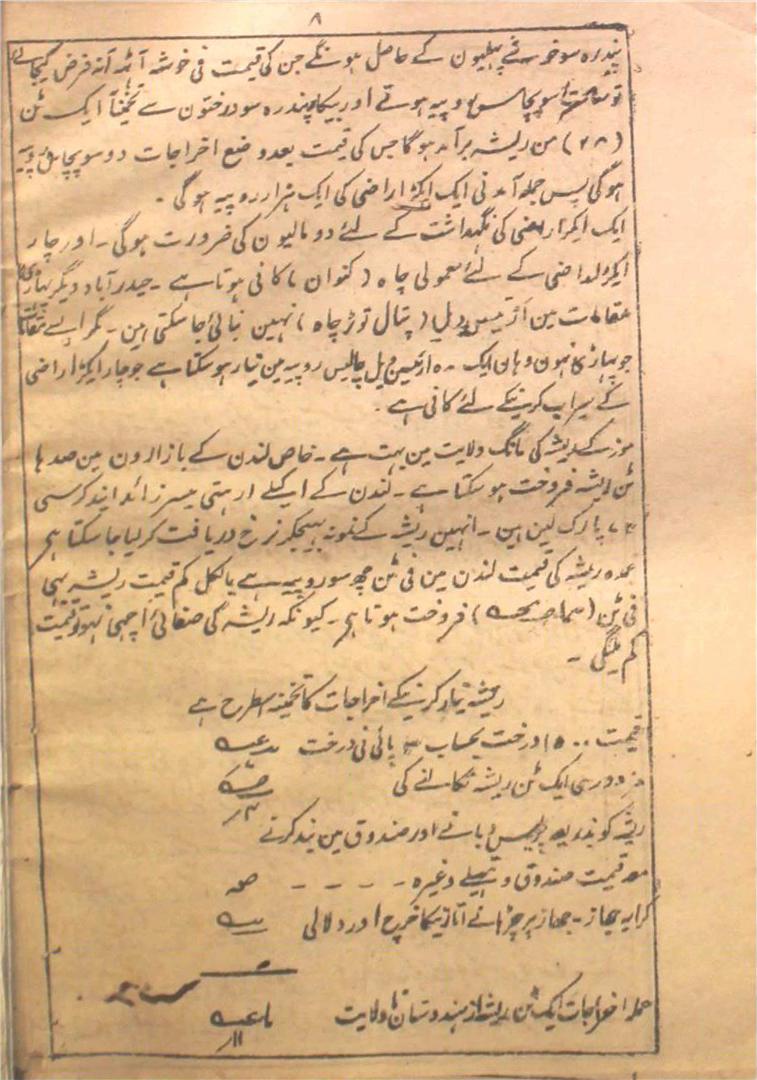 ۸
پندرہ سو خوشے پہلیون کے حاصل ہونگے جن کی قیمت فی خوشہ آٹھ آنہ فرض کیجاے
روپیہ ہوتے اور بیکار پندرہ سو درختون سے تخمیناً ایک ٹن
(۲۸) من ریشہ برآمد ہوگا جس کی قیمت بعد وضع اخراجات دو سو پچاس روپیہ
ہوگی پس جملہ آمدنی ایک ایکڑ اراضی کی ایک ہزار روپیہ ہوگی ۔
ایک ایکڑ اراضی کی نگہداشت کے لئے دو مالیون کی ضرورت ہوگی ۔ اور چار
ایکڑ اراضی کے لئے معمولی چاہ (کنوان) کافی ہوتا ہے ۔ حیدرآباد و دیگر پہاڑی
مقامات مین ویل (پتال توڑ چاہ) نہین بنائی جا سکتی ہین ۔ مگر ایسے مقامات
جو پہاڑ کا نہون وہان ایک ویل چالیس روپیہ مین تیار ہو سکتا ہے جو چار ایکڑ اراضی
کے سیراب کرنیکے لئے کافی ہے ۔
موز کے ریشہ کی مانگ ولایت مین بہت ہے ۔ خاص لندن کے بازارون مین صدہا
ٹن ریشہ فروخت ہو سکتا ہے ۔ لندن کے اکیلے ارہتی میسرز ائد اینڈ کرسی
۷۴ پارک لین ہین ۔ انہین ریشہ کے نمونہ بہیجکر نرخ دریافت کر لیا جا سکتا ہے
عمدہ ریشہ کی قیمت لندن مین فی ٹن چھ سو روپیہ ہے بالکل کم قیمت ریشہ بہی
فی ٹن فروخت ہوتا ہے ۔ کیونکہ ریشہ کی صفائی اچھی نہو تو قیمت
کم ملیگی ۔
ریشہ تیار کرنیکے اخراجات کا تخمینہ اسطرح ہے
قیمت ۱۵۰۰ درخت بحساب ۳ پائی فی درخت
مزدوری ایک ٹن ریشہ نکالنے کی
ریشہ کو بذریعہ پریس دبانے اور صندوق مین بند کرنے
معہ قیمت صندوق و تہیلے وغیرہ ۔ ۔ ۔ ۔
کرایہ جہاز ۔ جہاز پر چڑہانے اتارنیکا خرچ اور دلالی
جملہ اخراجات ایک ٹن ریشہ از ہندوستان تا ولایت